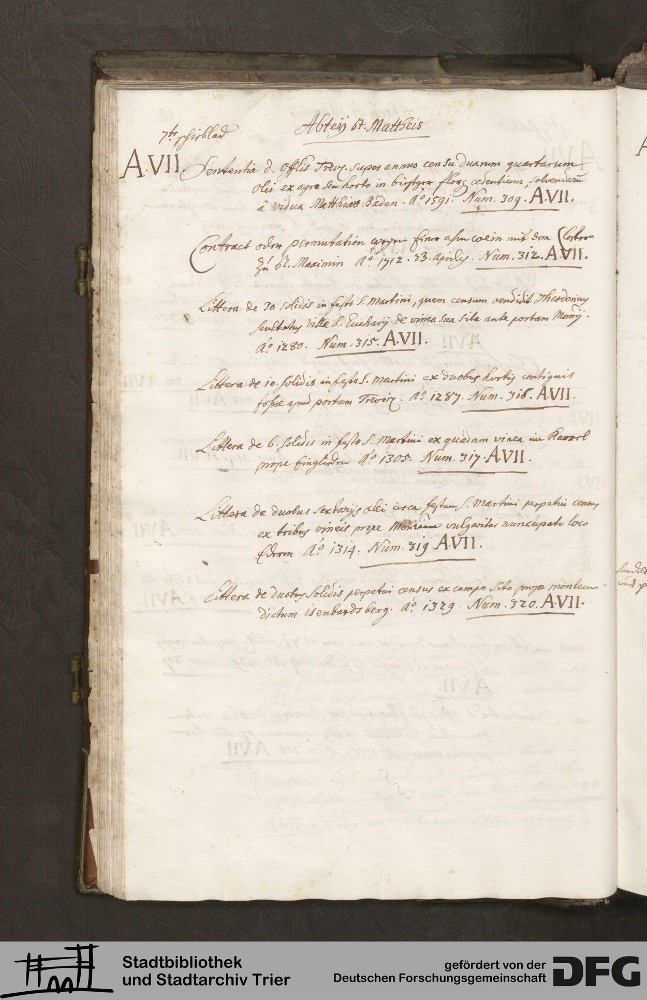 Abtey St. Mattheis
7te schiblad
A.VII. Sententia d. Offlis Trevy. super annuo censu duarum quartarum
olei ex agro seu horto in solvendarū
à vidua Matthias Baden. Aō 1591. Num. 309. A.VII.
Contract oder permutation wegen einer ahm wein mit dem Closter
zu St. Maximin Aō 1712. 23. Aprilis. Num. 312. A.VII.
Littera de 30 solidis in festo S. Martini, quem censum vendidit Theodoricus
scultetus villæ S. Eucharij de vinea sua sita ante portam
Aō 1280. Num. 315. A.VII.
Littera de 10. solidis in festo S. Martini ex duobus hortis contiguis
fossæ apud portam Aō 1287. Num. 316. A.VII.
Littera de 6. solidis in festo S. Martini ex quadam vinea in
prope Aō 1305. Num. 317. A.VII.
Littera de duobus sextarijs olei circa festum S. Martini perpetui census
ex tribus vineis prope vulgariter nuncupato loco
Aō 1314. Num. 319 A.VII.
Littera de duobus solidis perpetui census ex campo sito prope montem
dictum isenbardsberg. Aō 1329. Num. 320. A.VII.
Stadtbibliothek
und Stadtarchiv Trier
gefördert von der
Deutschen Forschungsgemeinschaft
DFG